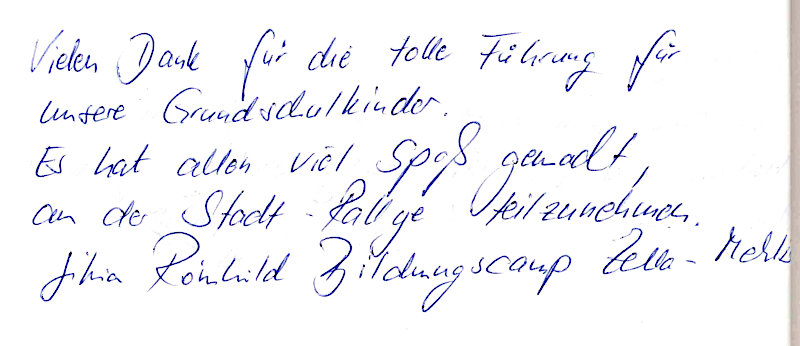 Vielen Dank für die tolle Führung für
unsere Grundschulkinder.
Es hat allen viel Spaß gemacht,
an der Stadt-Rallye teilzunehmen.
Römhild Bildungscamp Zella-Mehlis